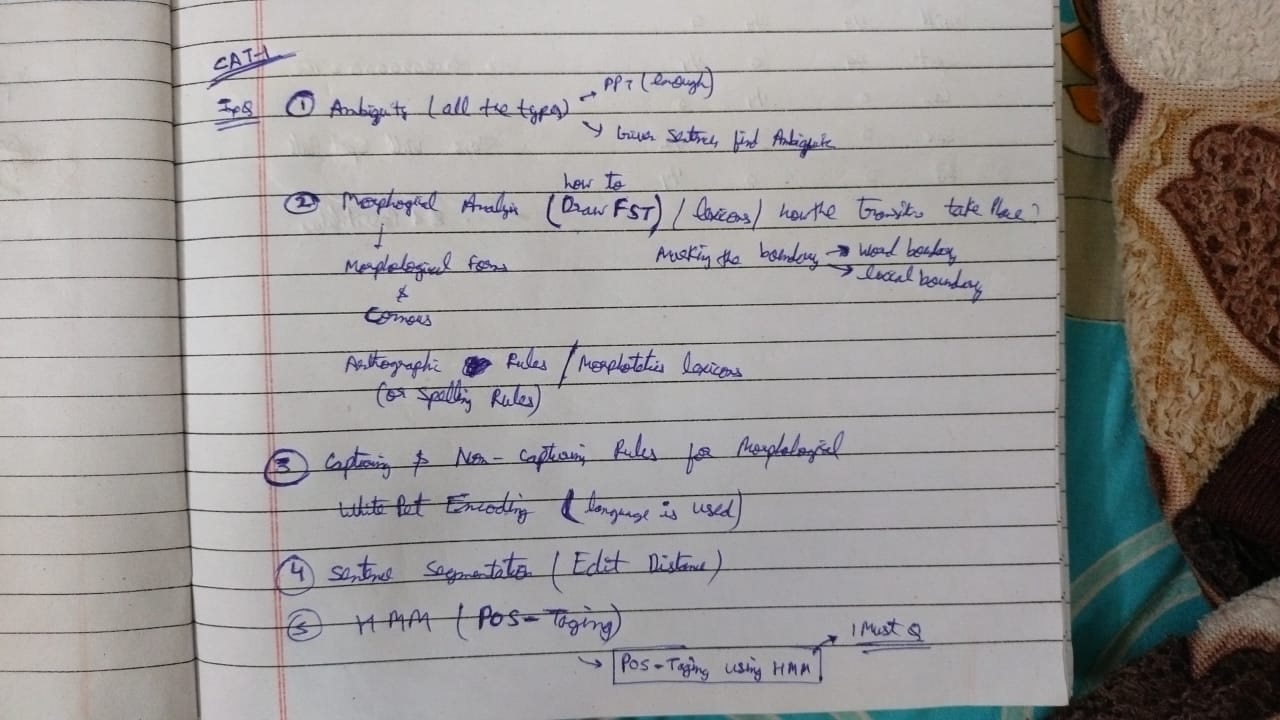 CAT-1
Imp Q ① Ambiguity (all the types) → PPT (enough)
→ Given Sentence, find Ambiguity
② Morphogical Analysis (how to Draw FST) / lexicons / how the transition take place?
↓
Morphological Forms
&
Marking the boundary → word boundary
→ lexical boundary
Orthographic Rules / Morphotatics lexicons
(or Spelling Rules)
③ Capturing & Non-Capturing Rules for Morphological
White Pet Encoding (language is used)
④ Sentence Segmentation (Edit Distance)
⑤ HMM (POS-Taging)
→ POS-Taging using HMM → 1 Must Q